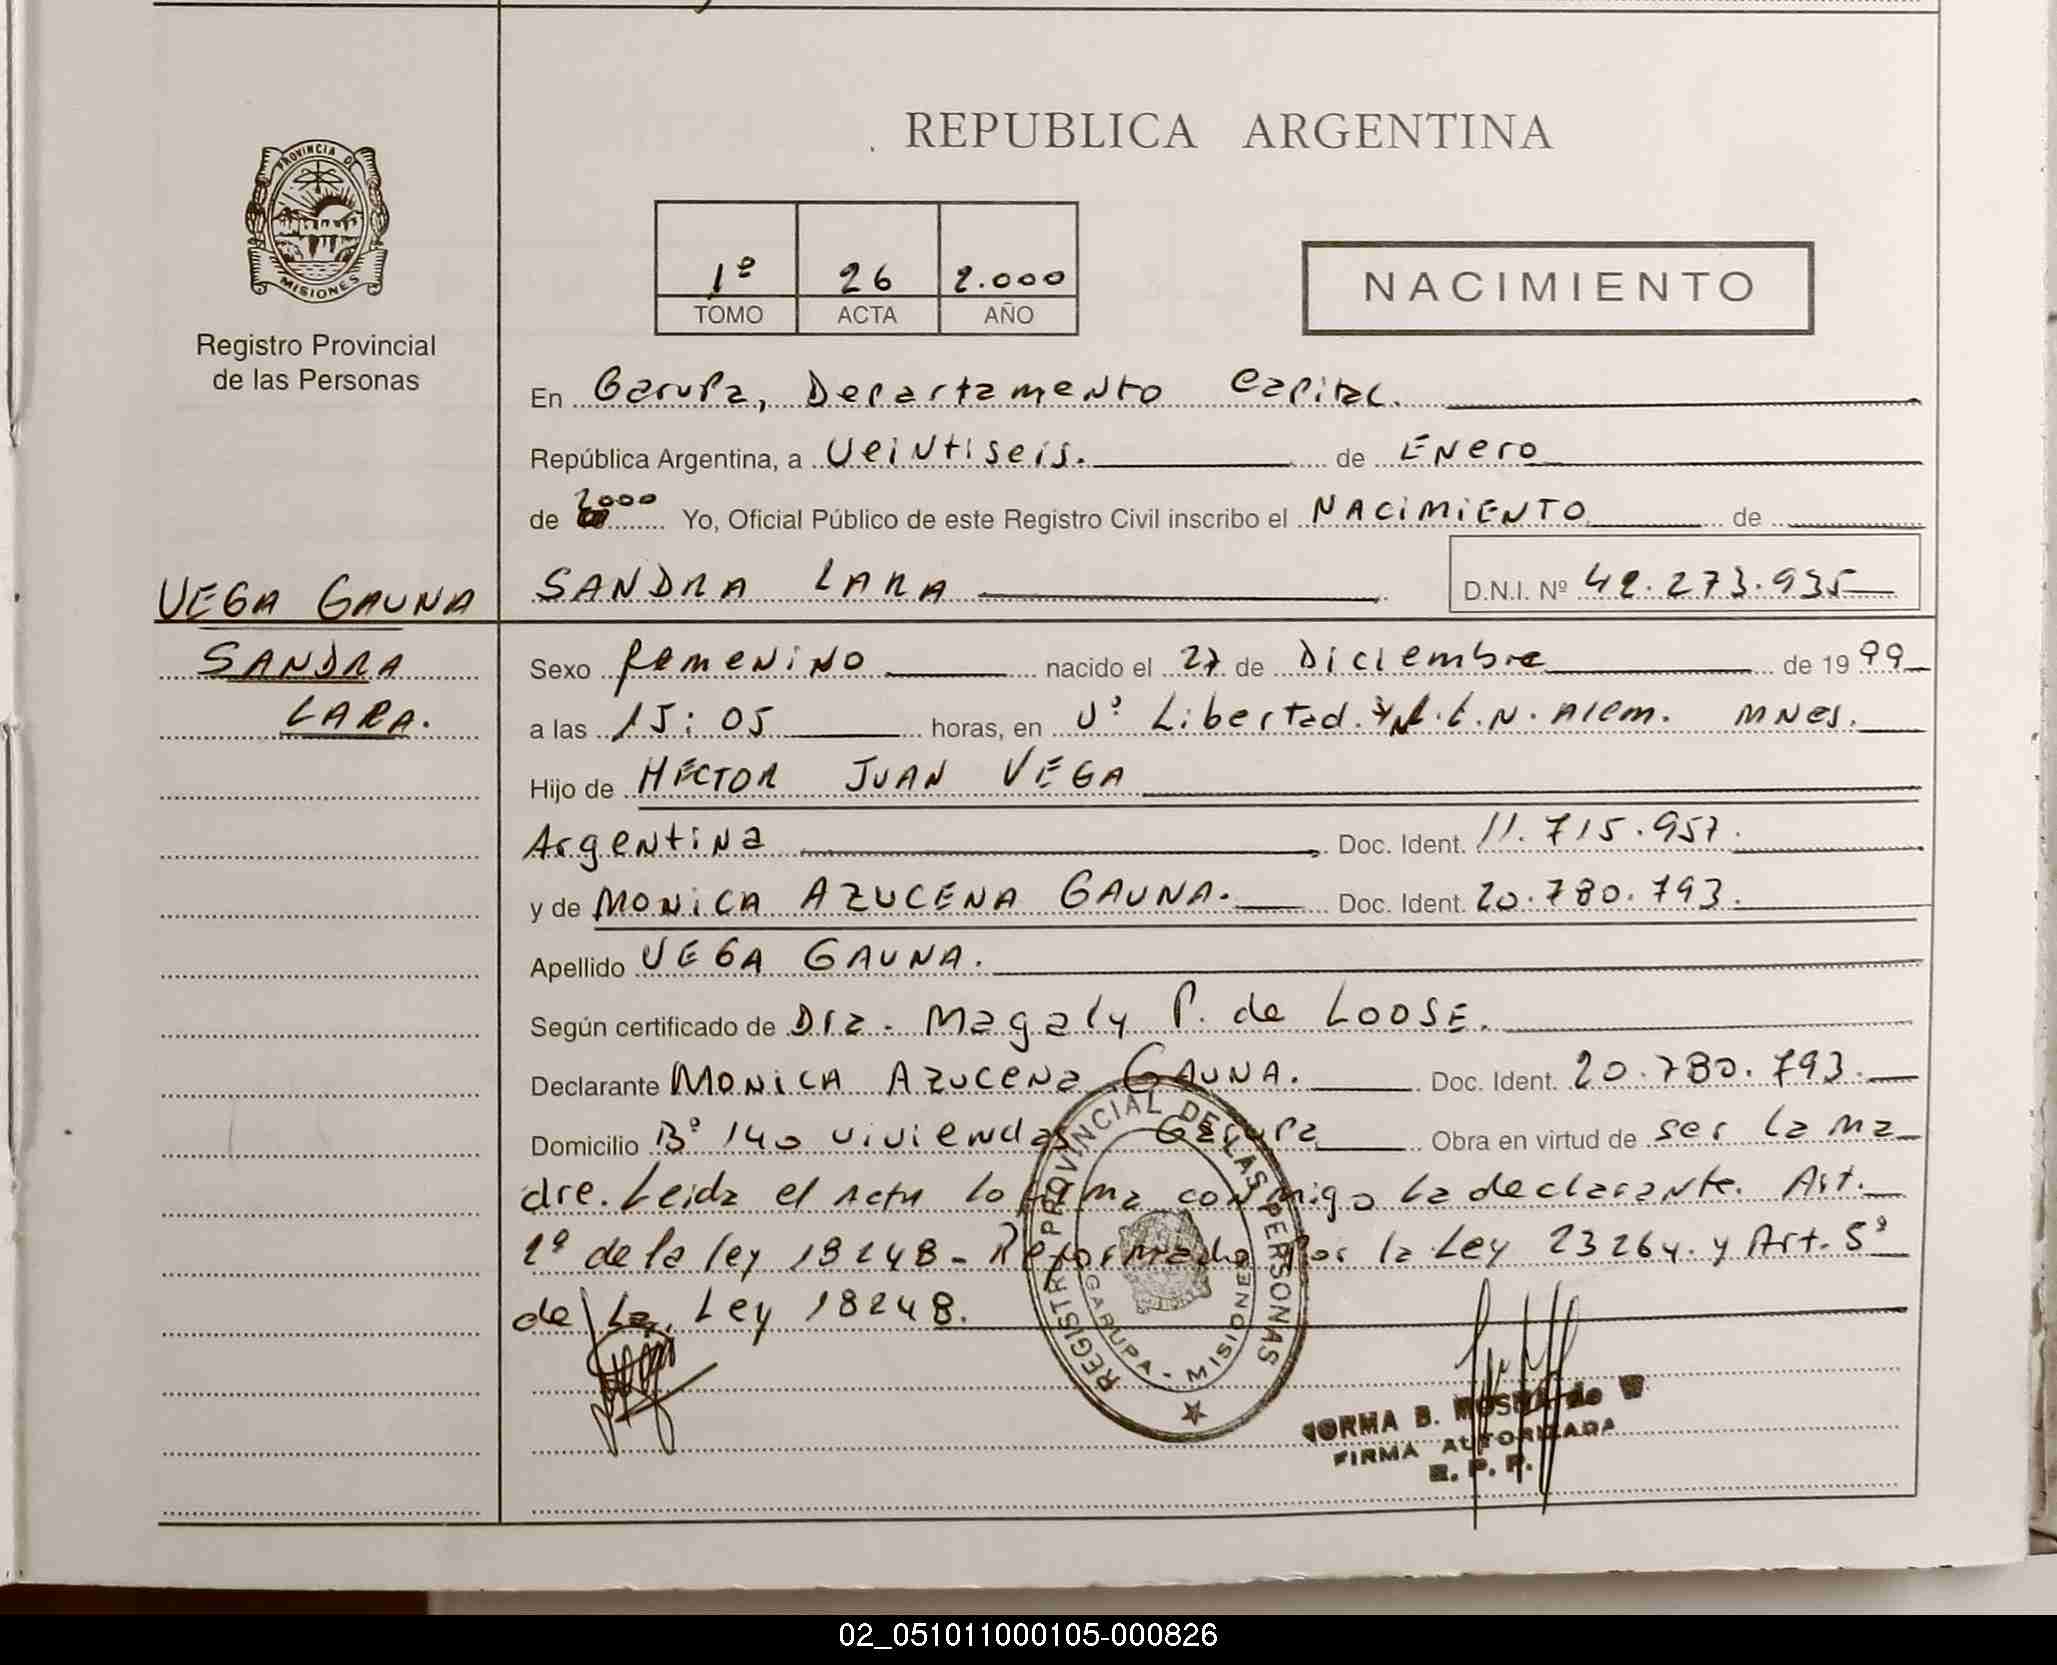 REPUBLICA ARGENTINA
PROVINCIA DE
MISIONES
Registro Provincial
de las Personas
1º 26 2.000
TOMO ACTA AÑO
NACIMIENTO
En Garupa, Departamento Capital.
República Argentina, a Veintiseis. de Enero
de 2000 Yo, Oficial Público de este Registro Civil inscribo el NACIMIENTO de
VEGA GAUNA
SANDRA
LARA.
SANDRA LARA D.N.I. Nº 42.273.935
Sexo femenino nacido el 27 de Diciembre de 1999
a las 15:05 horas, en Libertad. L.N. Alem. Mnes.
Hijo de HECTOR JUAN VEGA
Argentina Doc. Ident. 11.715.957.
y de MONICA AZUCENA GAUNA. Doc. Ident. 20.780.793.
Apellido VEGA GAUNA.
Según certificado de Dra. Magaly P. de LOOSE.
Declarante MONICA AZUCENA GAUNA. Doc. Ident. 20.780.793.
Domicilio Bº 140 viviendas Garupa Obra en virtud de ser la ma
dre. Leida el acta lo firma conmigo la declarante. Art.
2º de la ley 18248 - Reformado por la Ley 23264. y Art. 5º
de la Ley 18248.
REGISTRO PROVINCIAL DE LAS PERSONAS
GARUPA - MISIONES
NORMA B. de W
FIRMA AUTORIZADA
R. P. P.
02_051011000105-000826